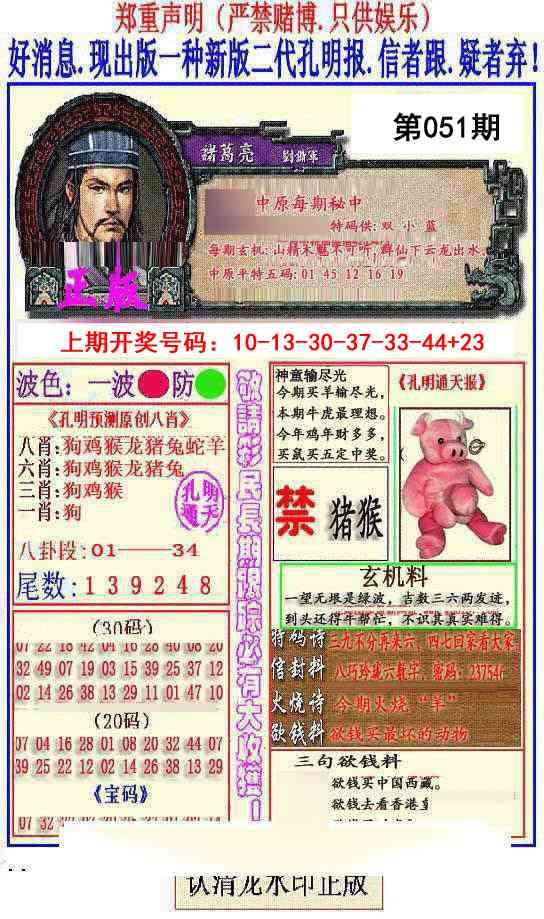 郑重声明（严禁赌博.只供娱乐）
好消息.现出版一种新版二代孔明报.信者跟.疑者弃！
第051期
諸葛亮
中原每期秘中
特码供: 双 小 蓝
每期玄机:
仙下云龙出水
中原平特五码: 01 45 12 16 19
正版
上期开奖号码：10-13-30-37-33-44+23
波色：一波 防
《孔明预测原创八肖》
八肖:狗鸡猴龙猪兔蛇羊
六肖:狗鸡猴龙猪兔
三肖:狗鸡猴
一肖:狗
孔明
通天
八卦段:01——34
尾数:139248
(30码)
07 22 18 42 04 16 28 40 08 20
32 49 07 19 03 15 39 25 37 46
02 14 26 38 13 29 11 01 47 10
(20码)
07 04 16 28 01 08 20 32 44 07
39 25 22 12 02 14 26 38 13 29
《宝码》
07 32
敬請彩民長期跟踪必有大收獲！
神童输尽光
今期买羊输尽光，
本期牛虎最理想。
今年鸡年财多多，
买鼠买五定中奖。
《孔明通天报》
禁
猪猴
玄机料
一望无垠是绿波，吉数三六两发迹，
到头还得牛帮忙，不识其真实难得。
特码诗 三九不分再来六，四七回家看大家
信封料 八巧玲珑六载字，密码：23754
火烧诗 今期火烧“羊”
欲钱料 欲钱买最坏的动物
三句欲钱料
欲钱买中国西藏。
欲钱去看香港
认清龙水印正版